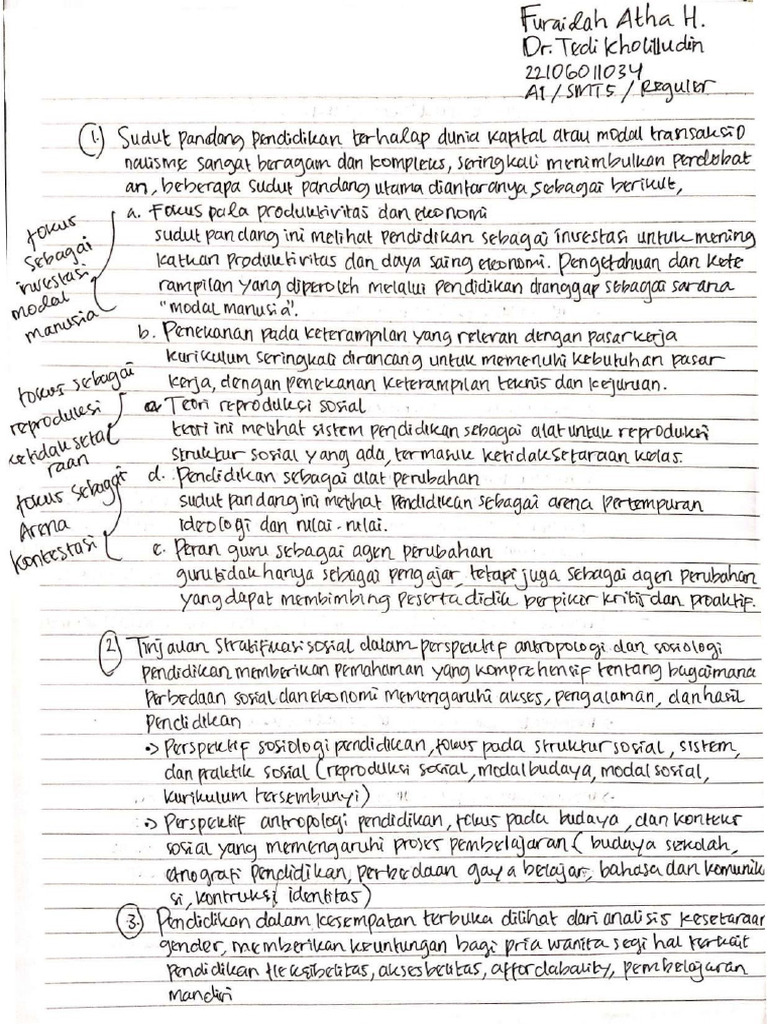 Furaidah Atha H.
Dr. Tedi Kholilludin
22106011034
A1 / SMT5 / Reguler
1. Sudut pandang pendidikan terhadap dunia kapital atau modal transaksio
nalisme sangat beragam dan kompleks, seringkali menimbulkan perdebat
an, beberapa sudut pandang utama diantaranya sebagai berikut,
a. Fokus pada produktivitas dan ekonomi
sudut pandang ini melihat pendidikan sebagai investasi untuk mening
katkan produktivitas dan daya saing ekonomi. Pengetahuan dan kete
rampilan yang diperoleh melalui pendidikan dianggap sebagai sarana
"modal manusia".
fokus
sebagai
investasi
modal
manusia
b. Penekanan pada keterampilan yang relevan dengan pasar kerja
kurikulum seringkali dirancang untuk memenuhi kebutuhan pasar
kerja, dengan penekanan keterampilan teknis dan kejuruan.
fokus sebagai
reproduksi
ketidakseta
raan
c. Teori reproduksi sosial
teori ini melihat sistem pendidikan sebagai alat untuk reproduksi
struktur sosial yang ada, termasuk ketidaksetaraan kelas.
d. Pendidikan sebagai alat perubahan
sudut pandang ini melihat pendidikan sebagai arena pertempuran
ideologi dan nilai-nilai.
fokus sebagai
Arena
kontestasi
e. Peran guru sebagai agen perubahan
guru tidak hanya sebagai pengajar, tetapi juga sebagai agen perubahan
yang dapat membimbing peserta didik berpikir kritis dan proaktif.
2. Tinjauan stratifikasi sosial dalam perspektif antropologi dan sosiologi
pendidikan memberikan pemahaman yang komprehensif tentang bagaimana
perbedaan sosial dan ekonomi memengaruhi akses, pengalaman, dan hasil
pendidikan
-> Perspektif sosiologi pendidikan, fokus pada struktur sosial, sistem,
dan praktik sosial (reproduksi sosial, modal budaya, modal sosial,
kurikulum tersembunyi)
-> Perspektif antropologi pendidikan, fokus pada budaya, dan konteks
sosial yang memengaruhi proses pembelajaran (budaya sekolah,
etnografi pendidikan, perbedaan gaya belajar, bahasa dan komunik
si, kontruksi identitas)
3. Pendidikan dalam kesempatan terbuka dilihat dari analisis kesetaraan
gender, memberikan keuntungan bagi pria wanita segi hal terkait
pendidikan fleksibelitas, aksesbelitas, affordabality, pembelajaran
mandiri